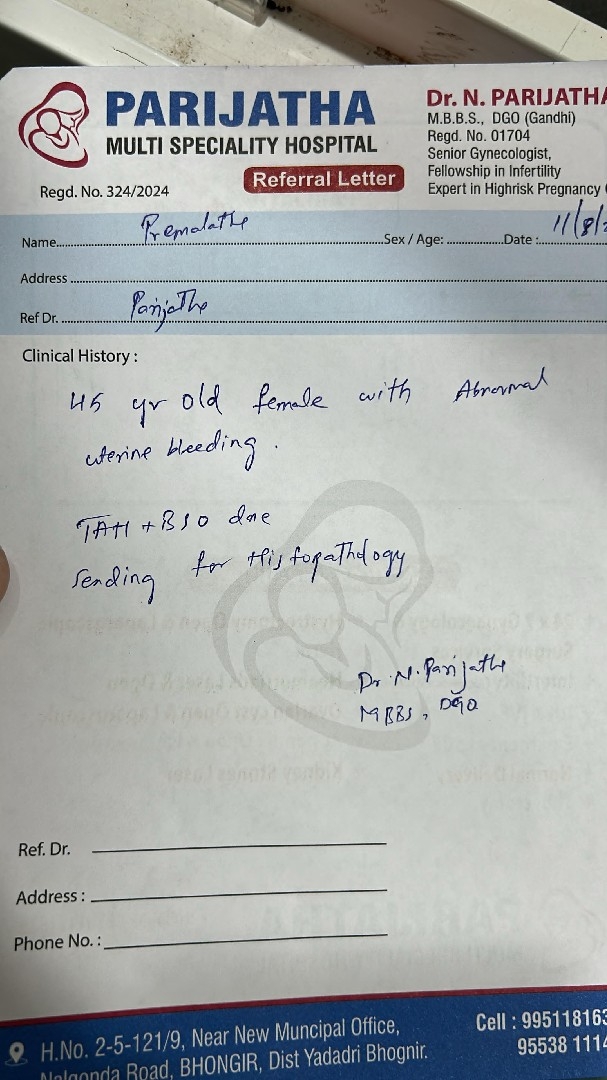 PARIJATHA
MULTI SPECIALITY HOSPITAL
Regd. No. 324/2024
Referral Letter
Dr. N. PARIJATHA
M.B.B.S., DGO (Gandhi)
Regd. No. 01704
Senior Gynecologist,
Fellowship in Infertility
Expert in Highrisk Pregnancy
Name Premalatha Sex / Age: Date : 11/8/2
Address
Ref Dr. Parijatha
Clinical History :
45 yr old female with Abnormal
uterine bleeding.
TAH + BSO done
Sending for Histopathology
Dr. N. Parijatha
MBBS, DGO
Ref. Dr.
Address :
Phone No. :
H.No. 2-5-121/9, Near New Muncipal Office,
Nalgonda Road, BHONGIR, Dist Yadadri Bhognir.
Cell : 995118163
95538 1114